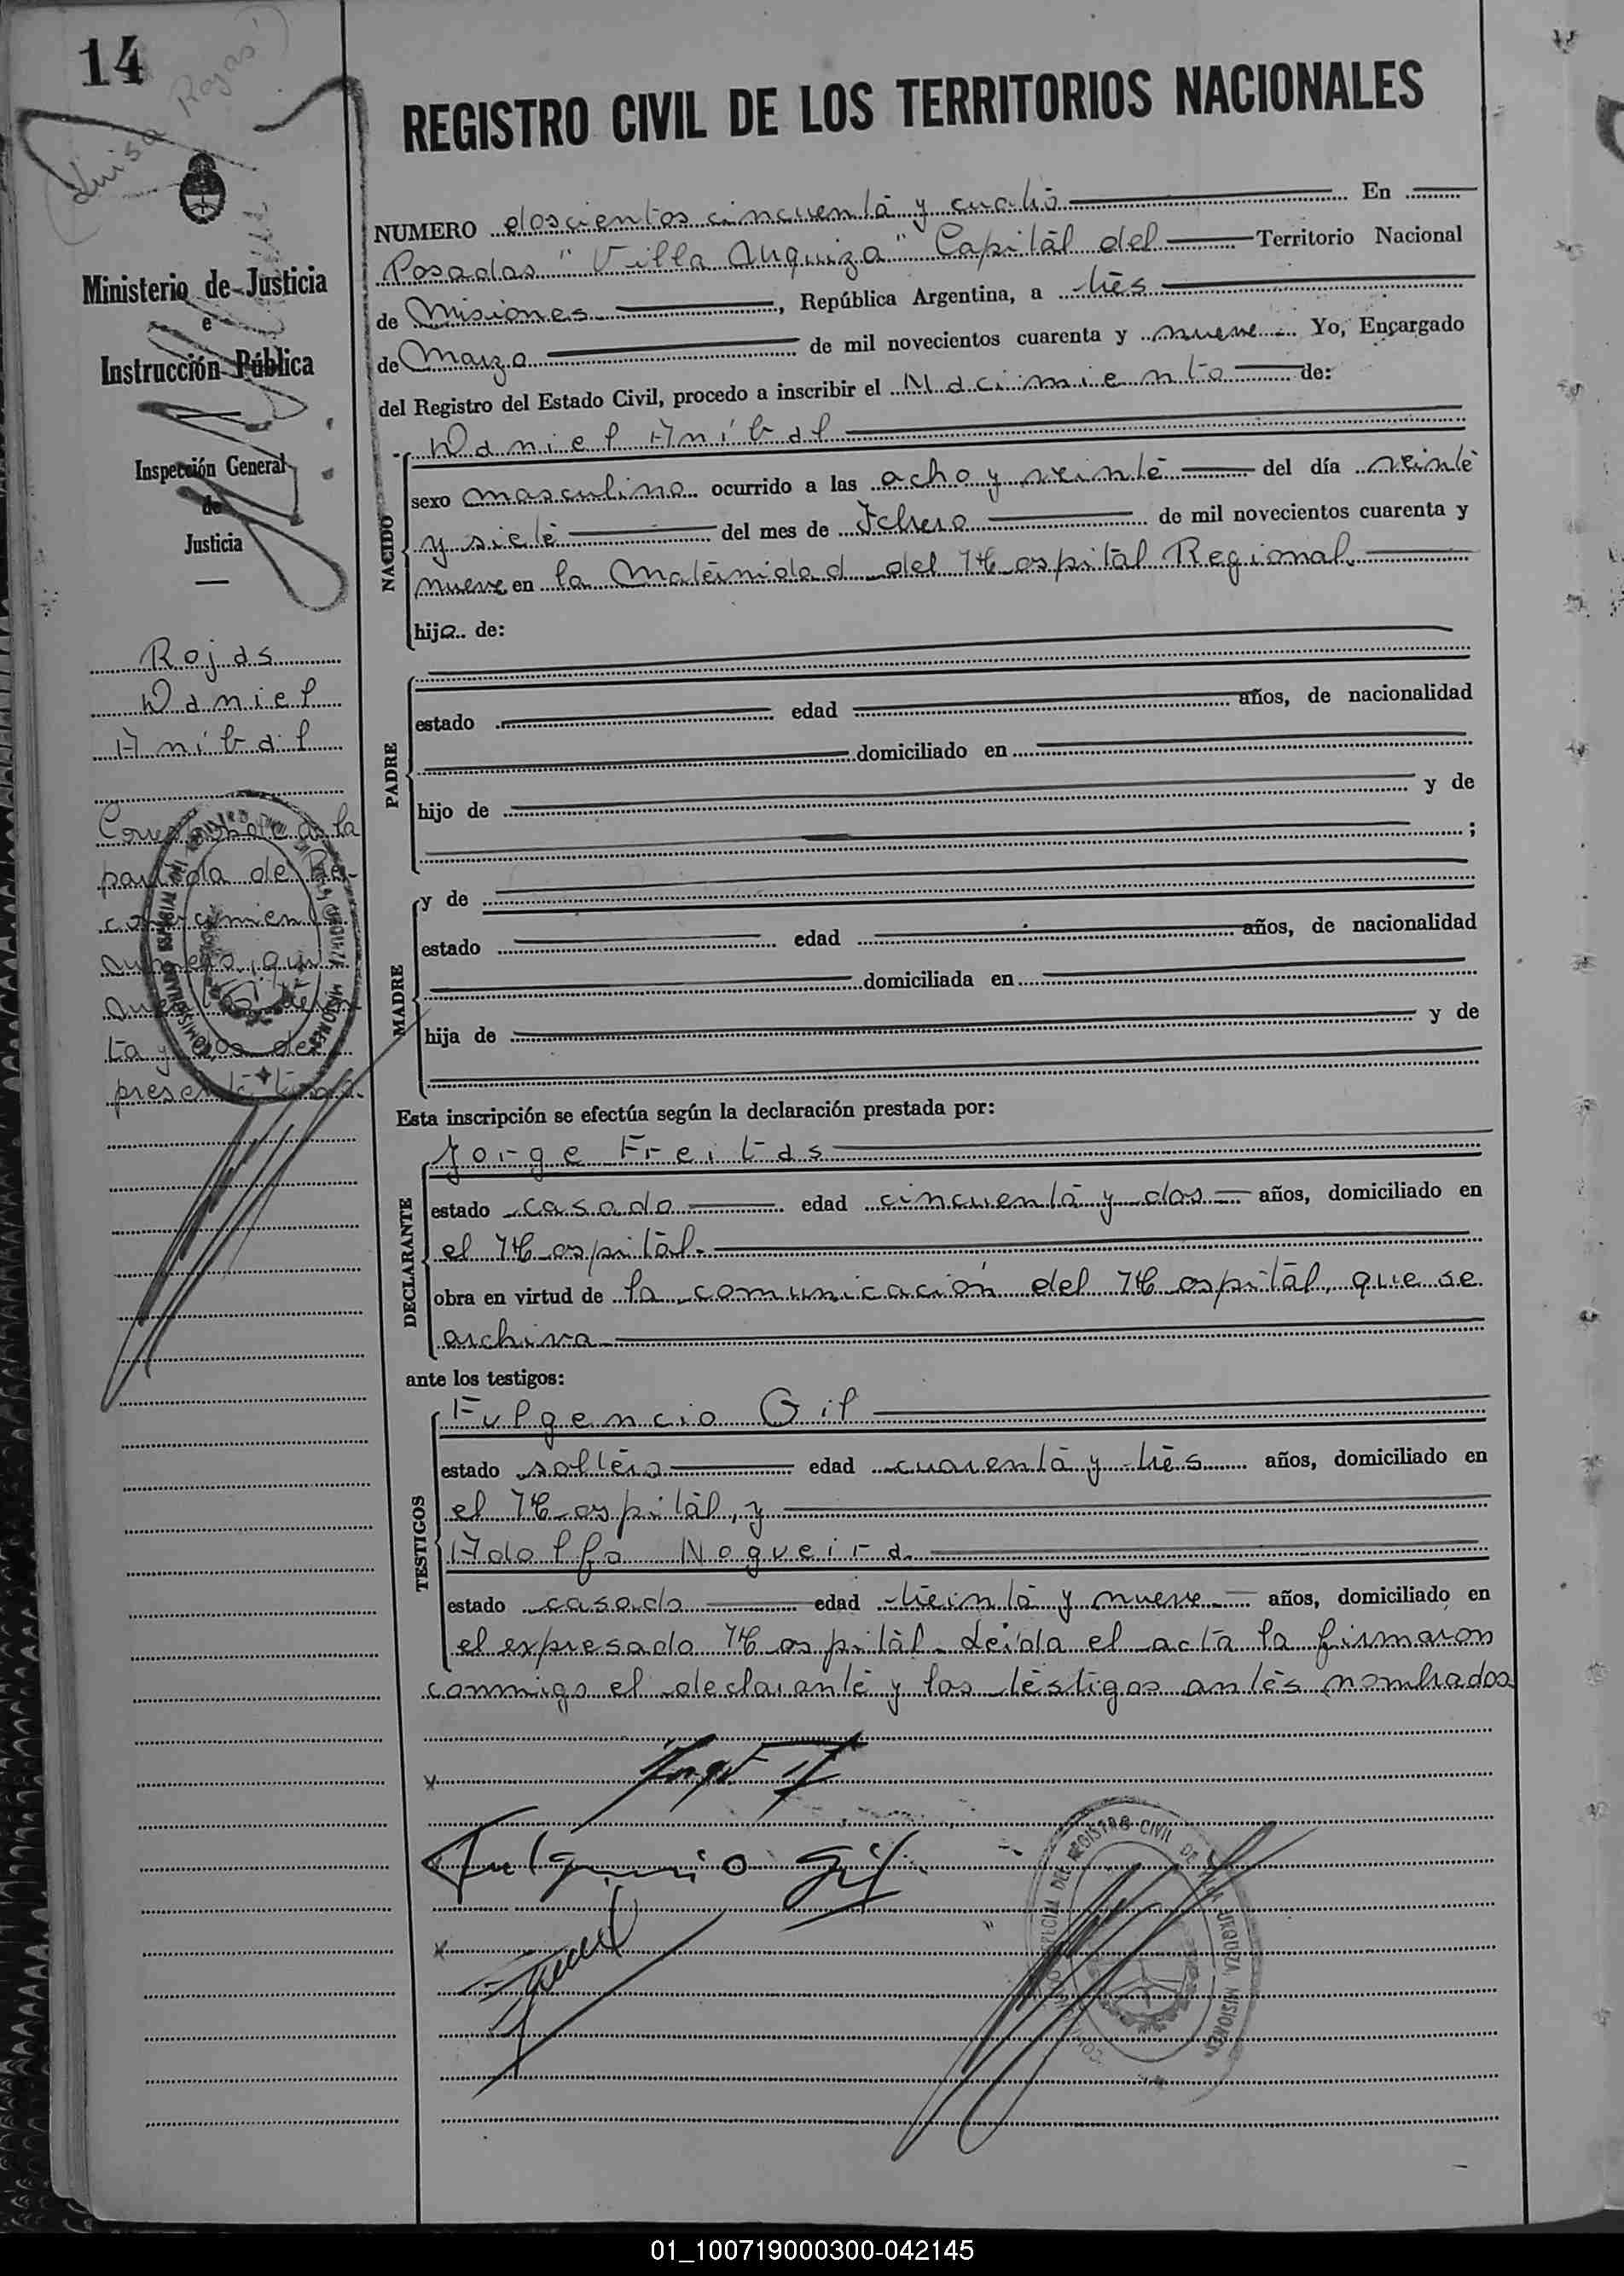 14
(Luisa Rojas)
REGISTRO CIVIL DE LOS TERRITORIOS NACIONALES
Ministerio de Justicia
e
Instrucción Pública
Inspección General
de
Justicia
Rojas
Daniel
Aníbal
la
partida de Re-
conocimien
número
ta y dos del
presente tomo.
NUMERO doscientos cincuenta y cuatro En
Posadas "Villa Urquiza" Capital del Territorio Nacional
de Misiones, República Argentina, a tres
de Marzo de mil novecientos cuarenta y nueve Yo, Encargado
del Registro del Estado Civil, procedo a inscribir el Nacimiento de:
NACIDO
Daniel Aníbal
sexo masculino ocurrido a las ocho y veinte del día veinte
y siete del mes de Febrero de mil novecientos cuarenta y
nueve en la Maternidad del Hospital Regional.
hijo de:
PADRE
estado edad años, de nacionalidad
domiciliado en
hijo de y de
;
MADRE
y de
estado edad años, de nacionalidad
domiciliada en
hija de y de
Esta inscripción se efectúa según la declaración prestada por:
DECLARANTE
Jorge Freitas
estado casado edad cincuenta y dos años, domiciliado en
el Hospital.
obra en virtud de la comunicación del Hospital, que se
archiva
ante los testigos:
TESTIGOS
Fulgencio Gil
estado soltero edad cuarenta y tres años, domiciliado en
el Hospital, y
Adolfo Nogueira
estado casado edad treinta y nueve años, domiciliado en
el expresado Hospital. Leída el acta la firmaron
conmigo el declarante y los testigos antes nombrados
Fulgencio Gil
DEL REGISTRO CIVIL DE VILLA URQUIZA MISIONES
01_100719000300-042145